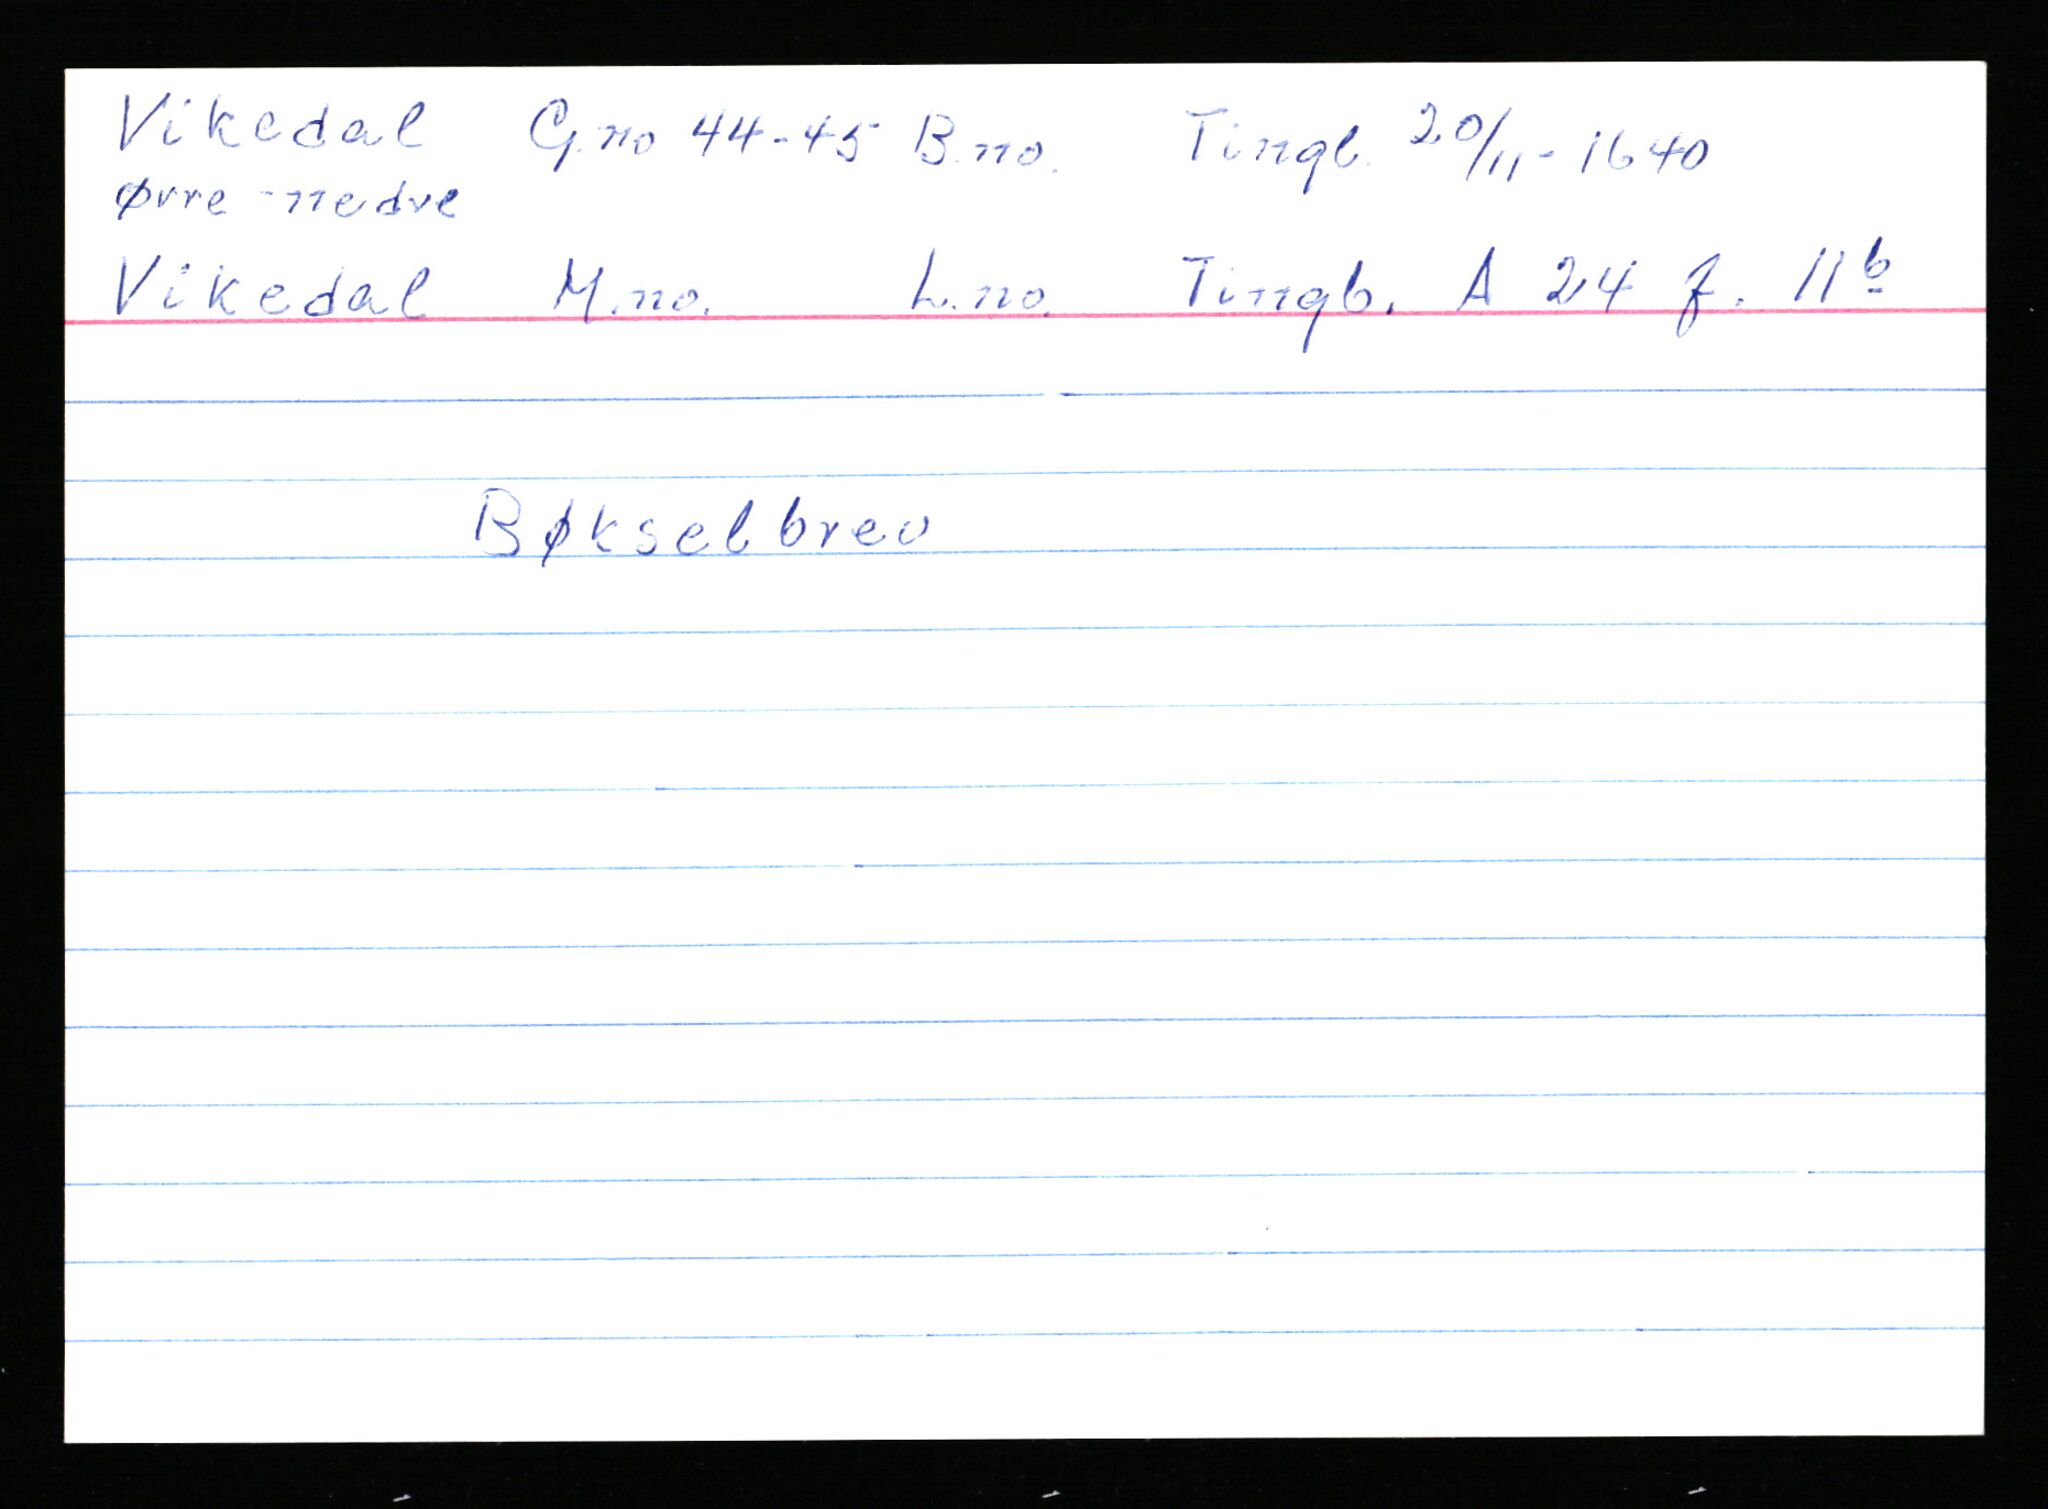 Vikedal G.no 44-45 B.no. Tingl. 20/11-1640
Øvre - nedre
Vikedal M.no. L.no. Tingb. A 24 f. 11b
Bøkselbrev